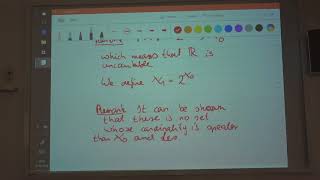 Remark
which means that ℝ is
uncountable
We define ℵ₁ = 2^ℵ₀
Remark It can be shown
that there is no set
whose cardinality is greater
than ℵ₀ and les